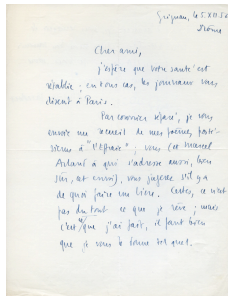 Grignan, 
Drôme
Cher ami,
j'espère que votre santé est
rétablie; en tous cas, les journaux vous
disent à Paris.
Par courrier séparé, je vous
envoie un recueil de mes poèmes, posté-
rieurs à "L'Effraie"; vous (et Marcel
Arland à qui s'adresse aussi, bien
sûr, cet envoi), vous jugerez s'il y a
de quoi faire un livre. Certes, ce n'est
pas du tout ce que je rêve; mais
c'est ce que j'ai fait, il faut bien
que je vous le donne tel quel.